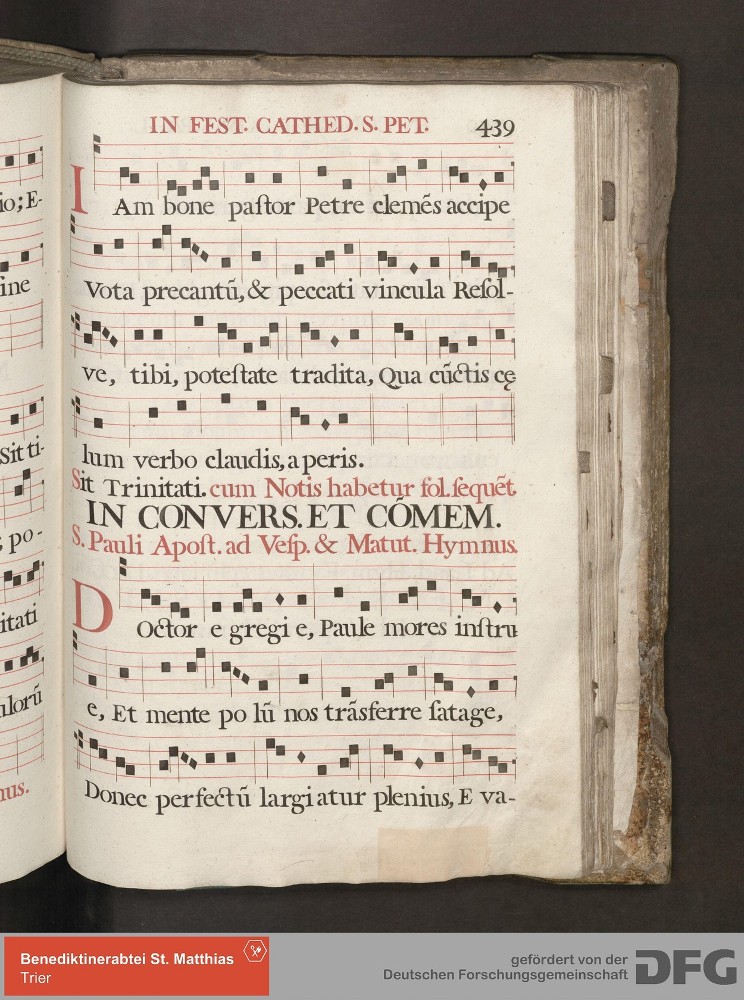 IN FEST. CATHED. S. PET. 439
IAm bone paſtor Petre clemẽs accipe
Vota precantũ, & peccati vincula Reſol-
ve, tibi, poteſtate tradita, Qua cũctis cę
lum verbo claudis, aperis.
Sit Trinitati. cum Notis habetur fol. ſequẽt.
IN CONVERS. ET CÕMEM.
S. Pauli Apoſt. ad Veſp. & Matut. Hymnus.
DOctor e gregi e, Paule mores inſtru
e, Et mente po lũ nos trãsferre ſatage,
Donec perfectũ largi atur plenius, E va-
io; E-
ine
Sit ti-
; po-
itati
ulorũ
nus.
Benediktinerabtei St. Matthias
Trier
gefördert von der
Deutschen Forschungsgemeinschaft
DFG